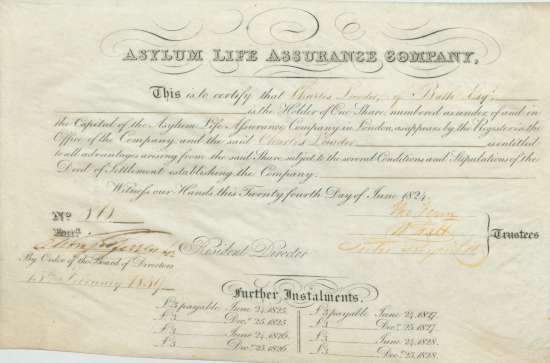 ASYLUM LIFE ASSURANCE COMPANY,
This is to certify that Charles Lowder, of Bath Esqr.
is the Holder of One Share, numbered as index of and in
the Capital of the Asylum Life Assurance Company in London, as appears by the Register in the
Office of the Company, and the said Charles Lowder is entitled
to all advantages arising from the said Share, subject to the several Conditions and Stipulations of the
Deed of Settlement establishing the Company.
Witness our Hands, this Twenty fourth Day of June 1824.
No.
Trustees
Resident Director
By Order of the Board of Directors
Further Instalments.
£3 payable June 24, 1825.
£3 Decr. 25, 1825.
£3 June 24, 1826.
£3 Decr. 25, 1826.
£3 payable June 24, 1827.
£3 Decr. 25, 1827.
£3 June 24, 1828.
£3 Decr. 25, 1828.